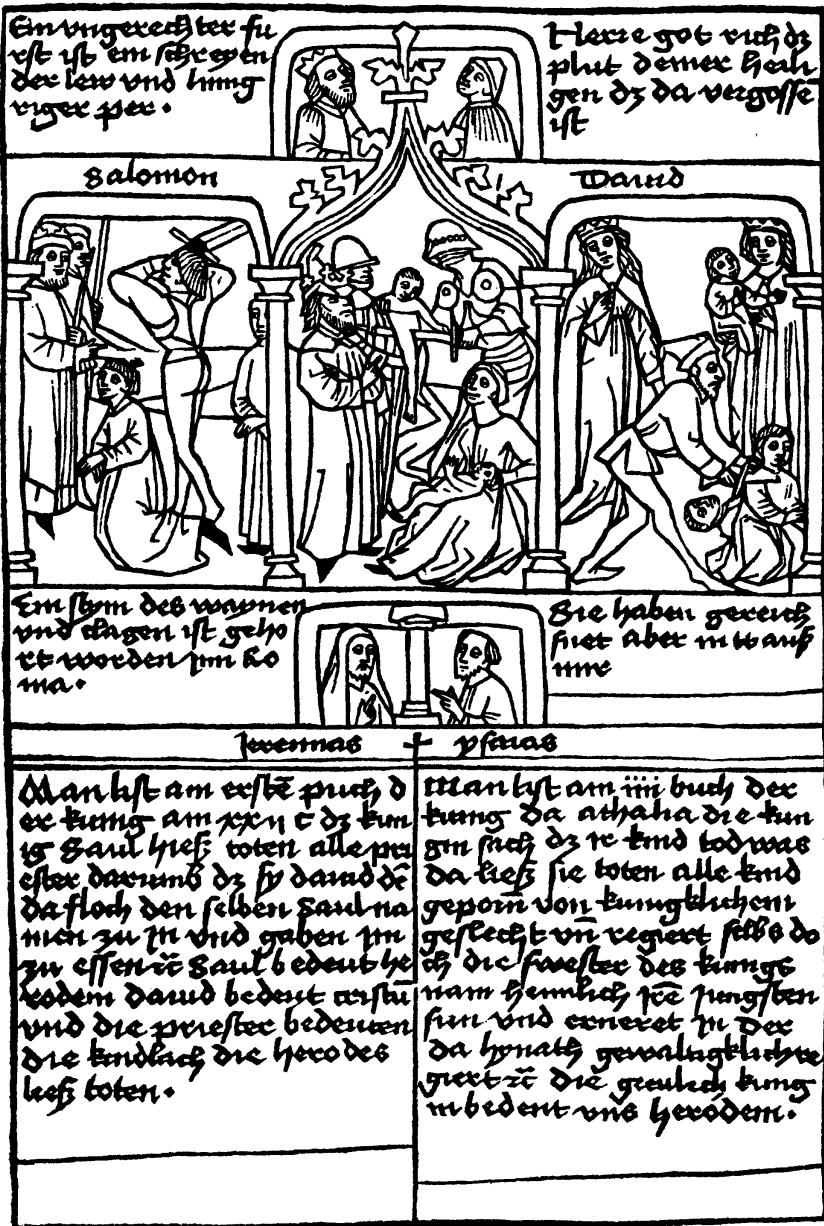 Ein vngerechter fu
rst ist ein schreyen
der lew vnd hung
riger per .
Herre got rich dz
plut deiner heili
gen dz da vergossē
ist
Salomon
Dauid
Ein stym des waynen
vnd clagen ist geho
rt worden jnn Ro
ma .
Sie haben gereich
snet aber nitt auß
mir
Jeremias ysaias
Man list am erstē puch d
er kunig am xxij c dz kun
ig Saul hieß toten alle pri
ester darumb dz sy dauid dē
da floch den selben Saul na
men zu jn vnd gaben jm
zu essen ⁊c̄ Saul bedeut he
rodem dauid bedeut cristū
vnd die priester bedeuten
die kindlach die herodes
ließ toten .
Man list am iiii buch der
kunig da athalia die kun
gin sach dz ir kind tod was
da ließ sie toten alle kind
geporn̄ von kunigklichem
geslecht vn̄ regiert selbs do
ch die swester des kungs
nam heimlich jrē jungsten
sun vnd erneret jn der
da hynath gewaltigklich re
giert ⁊c̄ die greulich kung
in bedeut vns herodem .